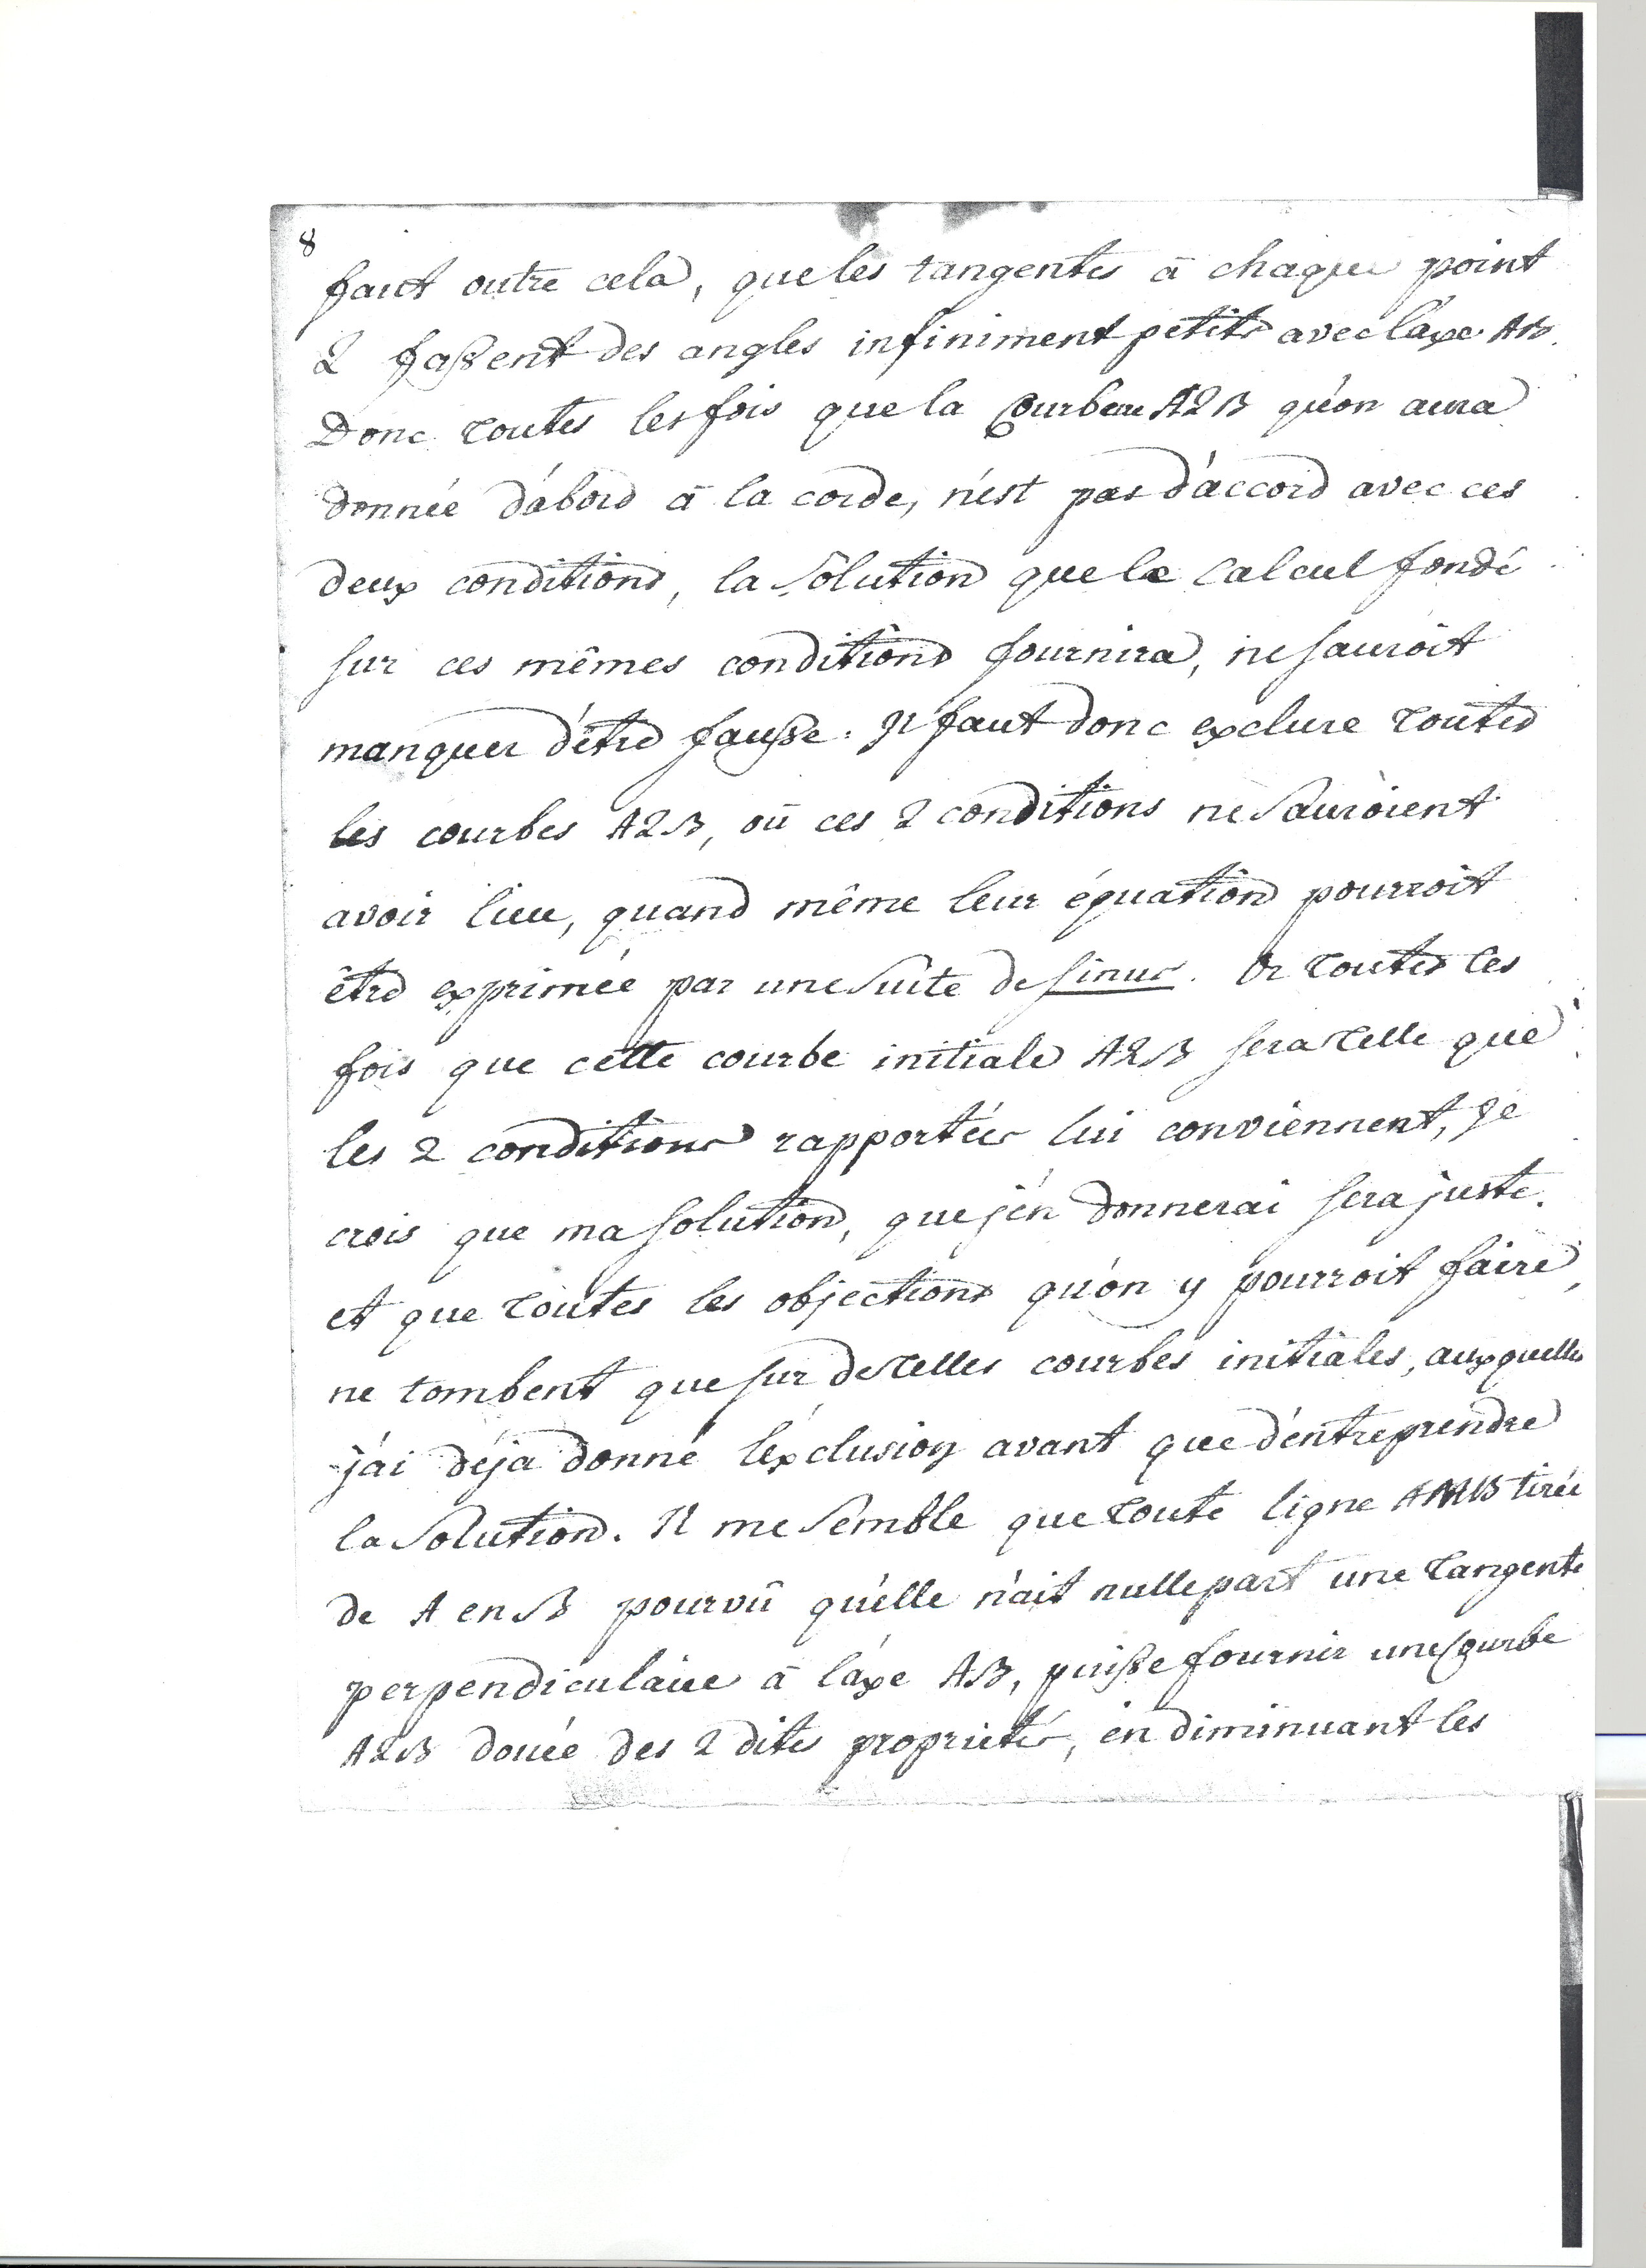 8
faut outre cela, que les tangentes à chaque point
2 faßent des angles infiniment petits avec l'axe AB.
Donc toutes les fois que la Courbe A2B qu'on aura
donnée d'abord à la corde, n'est pas d'accord avec ces
deux conditions, la solution que le Calcul fondé
sur ces mêmes conditions fournira, ne sauroit
manquer d'être faußse. Il faut donc exclure toutes
les courbes A2B, où ces 2 conditions ne sauroient
avoir lieu, quand même leur équation pourroit
être exprimée par une suite de sinus. Or toutes les
fois que cette courbe initiale A2B sera telle que
les 2 conditions rapportées lui conviennent, Je
crois que ma solution, que j'en donnerai sera juste.
et que toutes les objections qu'on y pourroit faire,
ne tombent que sur de telles courbes initiales, auxquelles
j'ai déja donné l'exclusion avant que d'entreprendre
la solution. Il me semble que toute ligne AMB tirée
de A en B pourvû qu'elle n'ait nulle part une tangente
perpendiculaire à l'axe AB, puiße fournir une Courbe
A2B douée des 2 dites proprietés, en diminuant les